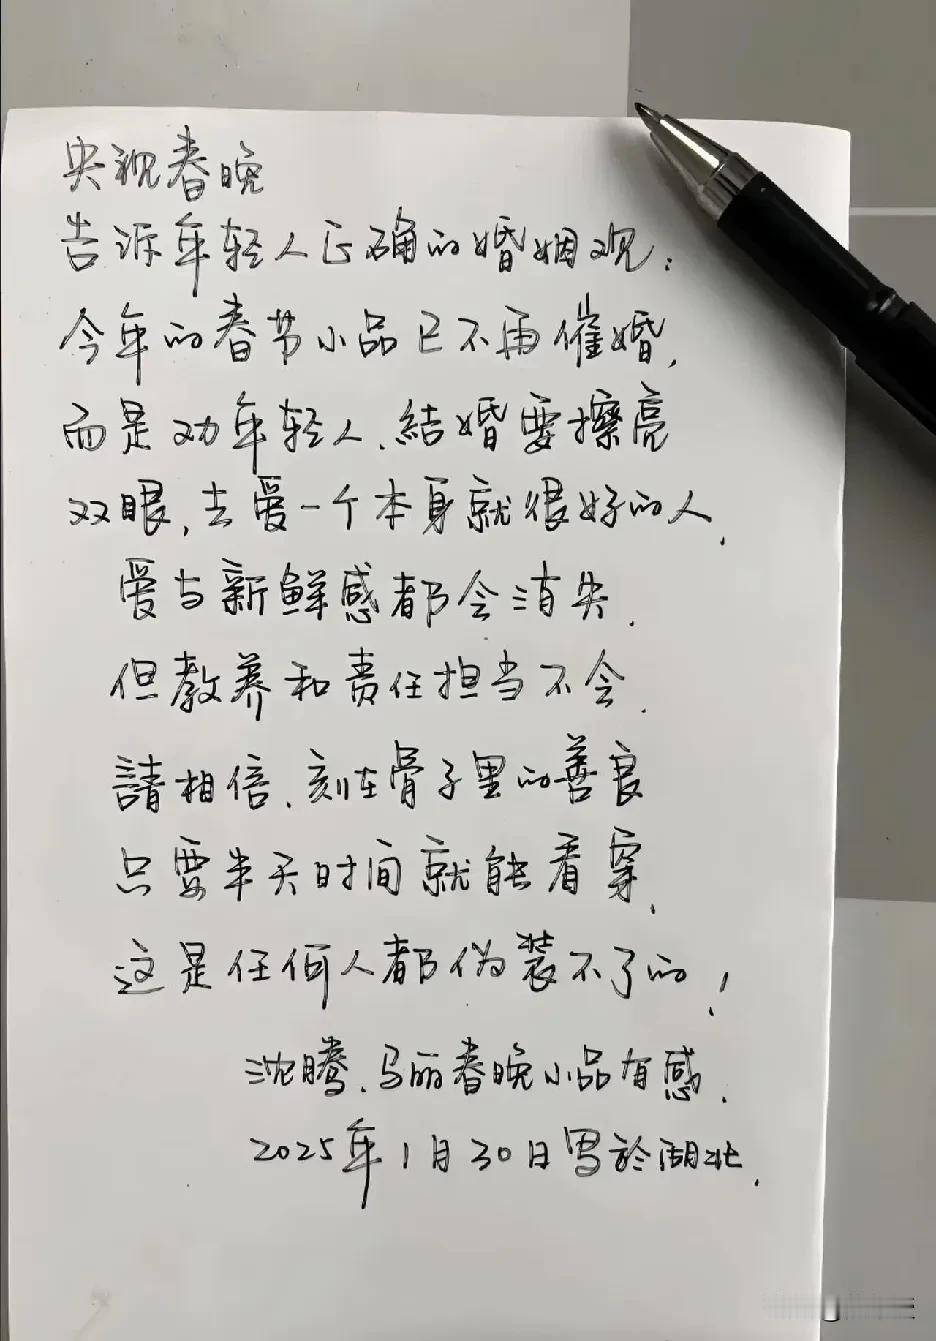 央视春晚
告诉年轻人正确的婚姻观：
今年的春节小品已不再催婚，
而是劝年轻人、結婚要擦亮
双眼，去爱一个本身就很好的人，
爱与新鲜感都会消失．
但教养和责任担当不会．
請相信、刻在骨子里的善良
只要半天时间就能看穿，
这是任何人都伪装不了的！
沈腾、马丽春晚小品有感．
2025年1月30日写於湖北．